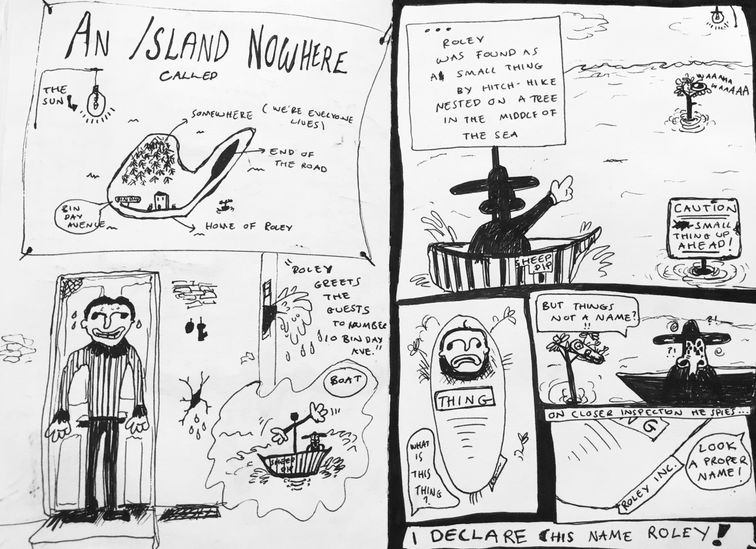 AN ISLAND NOWHERE
CALLED
THE
SUN
SOMEWHERE (WE'RE EVERYONE
LIVES)
END OF
THE ROAD
BIN
DAY
AVENUE
HOME OF ROLEY
"ROLEY
GREETS
THE
GUESTS
TO NUMBER
10 BIN DAY
AVE."
BOAT
SHEEP
DIP
...
ROLEY
WAS FOUND AS
A SMALL THING
BY HITCH-HIKE
NESTED ON A TREE
IN THE MIDDLE OF
THE SEA
WAAAHA
WAAAAA
SHEEP
DIP
CAUTION
SMALL
THING UP
AHEAD!
THING
WHAT
IS
THIS
THING?
BUT THINGS
NOT A NAME?
!!
?!
?!
ON CLOSER INSPECTION HE SPIES...
G
ROLEY INC.
LOOK
A PROPER
NAME!
I DECLARE THIS NAME ROLEY!